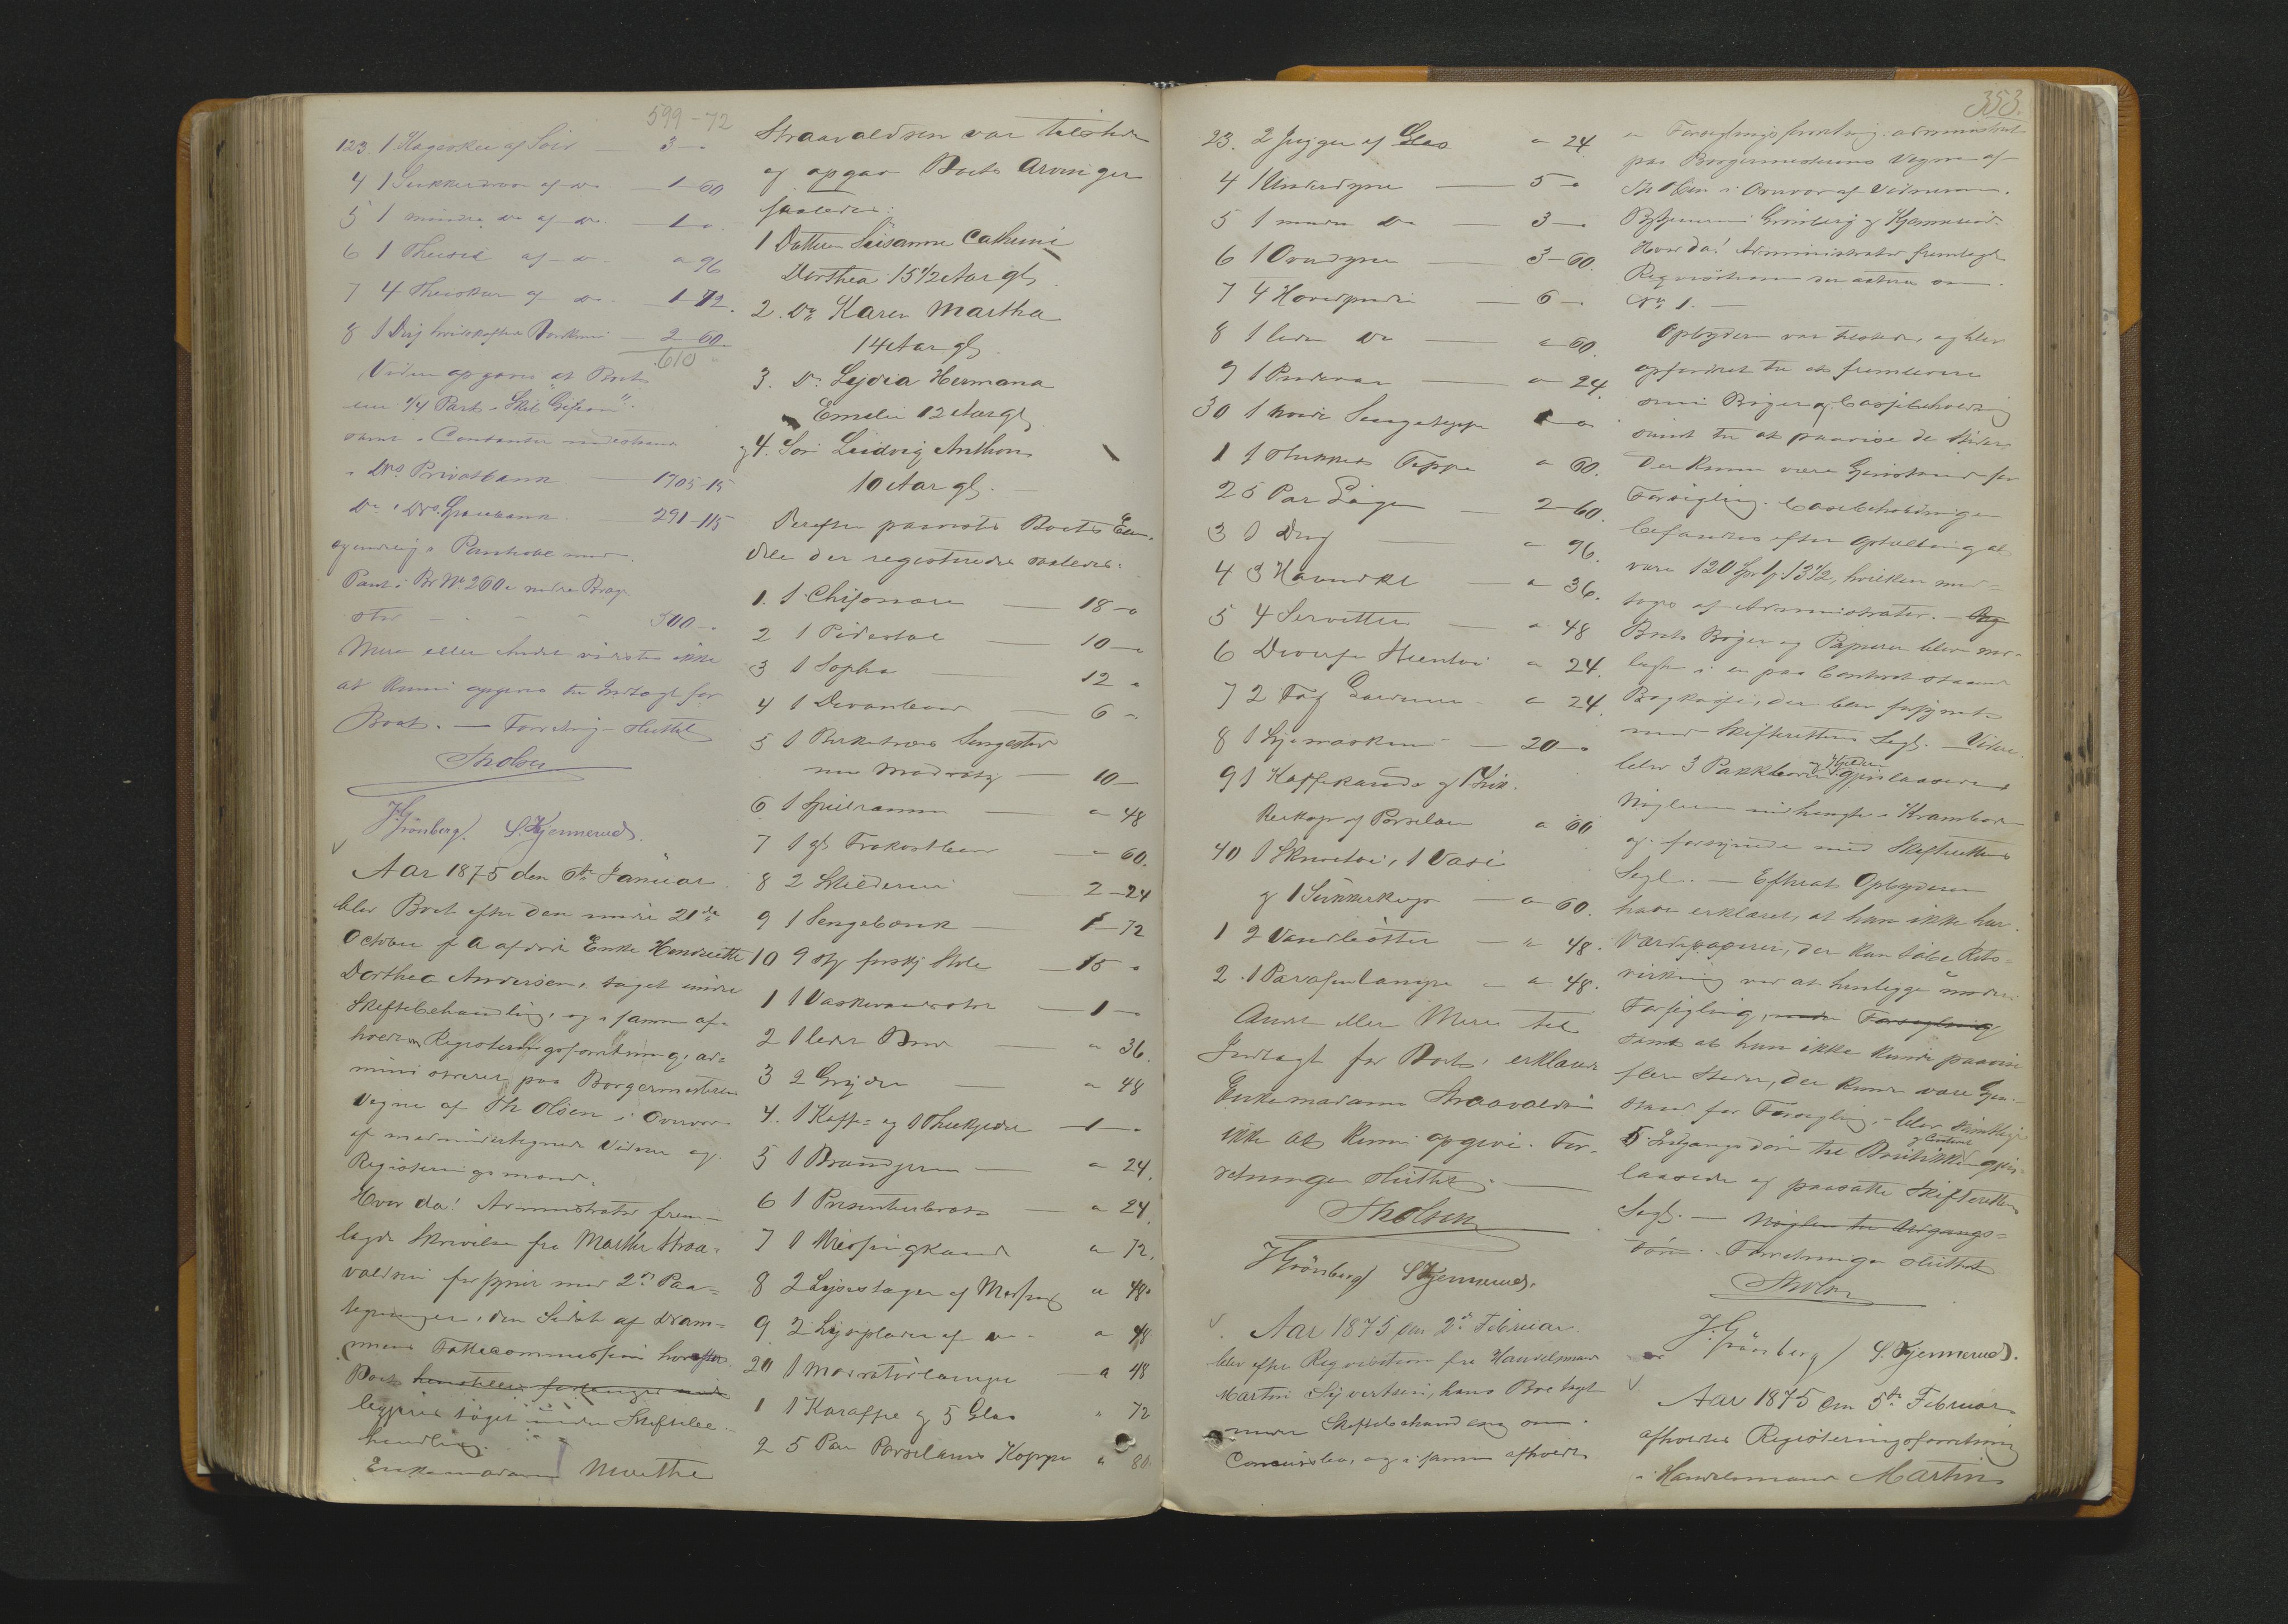 599-72
123. 1 Kageske af Sölv — 3 -"
4 1 Sukkerskee af do — 1-60
5 1 mindre do af do — 1 "
6 1 Theesie af do " 96
7 4 Theeskeer af do — 1-72.
8 1 — 2-60
610 "
Videre opgaves at Boet
eier 1/4 Part i Skib "Gefion"
samt i Contanter indestaaende
i Drs Privatbank — 1705-15
Do i Drs Sparebank 291-115
Pant i Br No 260 nedre Brag-
500 -"
Mere eller Andet vidstes ikke
at kunne opgives til Indtægt for
Boet. — Forretning sluttet
Th Olsen
J. Grönberg. S. Kjennerud.
Aar 1875 den 6te Januar
blev Boet efter den under 21de
October f A afdøde Enke Henriette
Dorthea Andersen, taget under
Skiftebehandling, og i samme af-
holdtes Registeringsforretning, ad-
ministreret paa Borgermesterens
Vegne af Th Olsen i Overvær
af medundertegnede Vidner og
Registeringsmænd.
Hvor da! Administrator frem-
lagde Skrivelse fra Marthe Straa-
valdsen forsynet med 2de Paa-
tegninger, den Sidste af Dram-
mens Fattigcommission hvorefter
Boet
begjæres taget under Skiftebe-
handling.
Enkemadame Marthe
Straavaldsen var tilstede
og opgav Boets Arvinger
saaledes:
1 Datteren Susanne Cathrine
Dorthea 15 1/2 Aar gl.
2. Do Karen Martha
14 Aar gl.
3. Do Lydia Hermana
Emelie 12 Aar gl
og 4. Søn Ludvig Anthon
10 Aar gl. —
Derefter paavistes Boets Eien-
dele der registreredes saaledes:
1. 1 Chifonniere — 18 -"
2 1 Pidestal — 10 -"
3 1 Sopha — 12 "
4 1 Divanbord — 6 -"
5 1 Birketræes Sengested
med Madrats — 10 -
6 1 Speilramme — " 48
7 1 gl Frokostbord — " 60.
8 2 Skilderier — 2-24
9 1 Sengebænk — 1-72
10 9 stk forskj Stole — 15 "
1 1 Vaskevandsstol — 1 -
2 1 lidet Bord — " 36.
3 2 Gryder — " 48
4. 1 Kaffe- og 1 Theekjedel — 1 -"
5 1 Brandjern — " 24.
6 1 Presenteerbret — " 24
7 1 Messingkande " 72.
8 2 Lysestager af Messing " 48.
9 2 Lyseplader af do " 48
20 1 Moderatörlampe — " 48
1 1 Karaffel og 5 Glas " 72
2 5 Par Porselains Kopper " 80.
353.
23. 2 Jugger af Glas " 24
4 1 Underdyne — 5 "
5 1 mindre do — 3 -"
6 1 Overdyne — 3-60.
7 4 Hovedpuder — 6 -
8 1 liden do — " 60.
9 1 Pudevar — " 24.
30 1 hvidt Sengeteppe 1 "
1 1 stukket Teppe " 60.
2 5 Par Lagen — 2-60.
3 1 Dug — " 96.
4 3 Haandkl — " 36.
5 4 Servietter — " 48
6 Diverse Steentøi " 24.
7 2 Fag Gardiner " 24.
8 1 Symaskine — 20 -"
9 1 Kaffekande og 1 Suk-
kerkop af Porselain " 60
40 1 Skrivetøi, 1 Vase
og 1 Sukkerkop — " 60.
1 2 Vandbøtter — " 48.
2. 1 Parafinlampe — " 48.
Andet eller Mere til
Indtægt for Boet, erklærede
Enkemadame Straavaldsen
ikke at kunne opgive. For-
retningen sluttet. —
Th Olsen
J Grönberg S Kjennerud.
Aar 1875 den 2den Februar
blev efter Reqvisition fra Handelsmand
Martin Syvertsen, hans Bo taget
under Skiftebehandling som
Concursbo, og i samme afholdt
en Forseglingsforretning administreret
paa Borgermesterens Vegne af
Th Olsen i Overvær af Vidnerne
Byskriverne Grönberg og Kjennerud.
Hvor da! Administrator fremlagde
Reqvisitionen der acteres som
No 1. —
Opbyderen var tilstede, og blev
opfordret til at fremlevere
sine Bøger og Cassebeholdning
samt til at paavise de Steder
der kunne være Gjenstand for
Forsegling. Cassebeholdningen
befandtes efter Optælling at
være 120 Spd 1 ort 13 1/2, hvilken mod-
toges af Administrator. — Og
Boets Bøger og Papirer blev ned-
lagte i en paa Contoret staaende
Bogkasse, der blev forsynet
med Skifterettens Segl. — Videre
blev 3 Pakkboder og Kjelder gjenlaasede
Nøglerne nedhængte i Kramboden
og forsynede med Skifterettens
Segl. — Efterat Opbyderen
havde erklæret, at han ikke har
Værdipapirer, der kan tabe Rets-
virkning ved at henlægges under
Forsegling, under Forsegling
samt at han ikke kunde paavise
flere Steder, der kunde være Gjen-
stand for Forsegling, — blev samtlige
5 Indgangsdøre til Boutikken og Contoret gjen-
laasede og paasatte Skifterettens
Segl. — Nøglen til Udgangs-
døren. Forretningen sluttet
Th Olsen
J. Grönberg / S. Kjennerud.
Aar 1875 den 5te Februar
afholdtes Registeringsforretning
i Handelsmand Martin